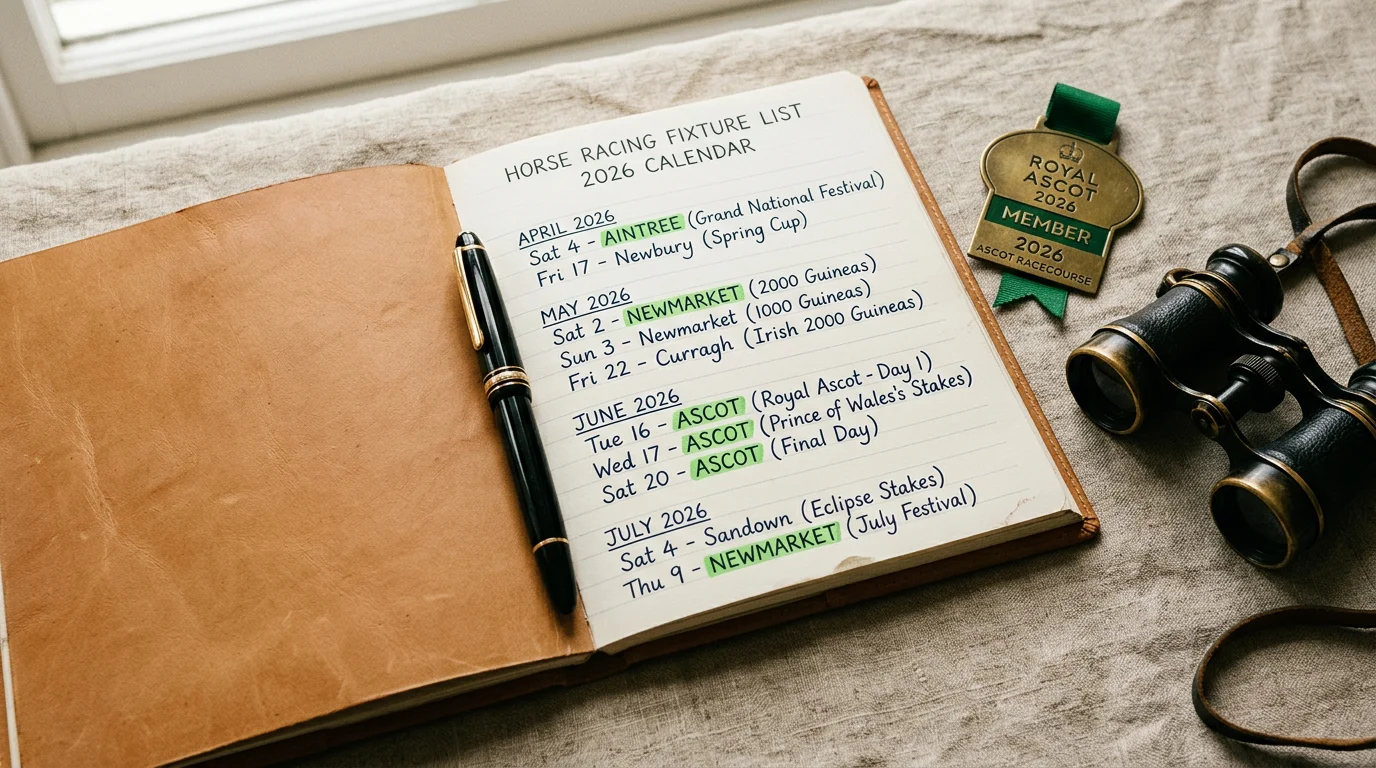 HORSE RACING FIXTURE LIST
2026 CALENDAR
APRIL 2026
Sat 4 - AINTREE (Grand National Festival)
Fri 17 - Newbury (Spring Cup)
MAY 2026
Sat 2 - NEWMARKET (2000 Guineas)
Sun 3 - Newmarket (1000 Guineas)
Fri 22 - Curragh (Irish 2000 Guineas)
JUNE 2026
Tue 16 - ASCOT (Royal Ascot - Day 1)
Wed 17 - ASCOT (Prince of Wales's Stakes)
Sat 20 - ASCOT (Final Day)
JULY 2026
Sat 4 - Sandown (Eclipse Stakes)
Thu 9 - NEWMARKET (July Festival)
ROYAL
ASCOT
2026
MEMBER
2026
ASCOT RACECOURSE